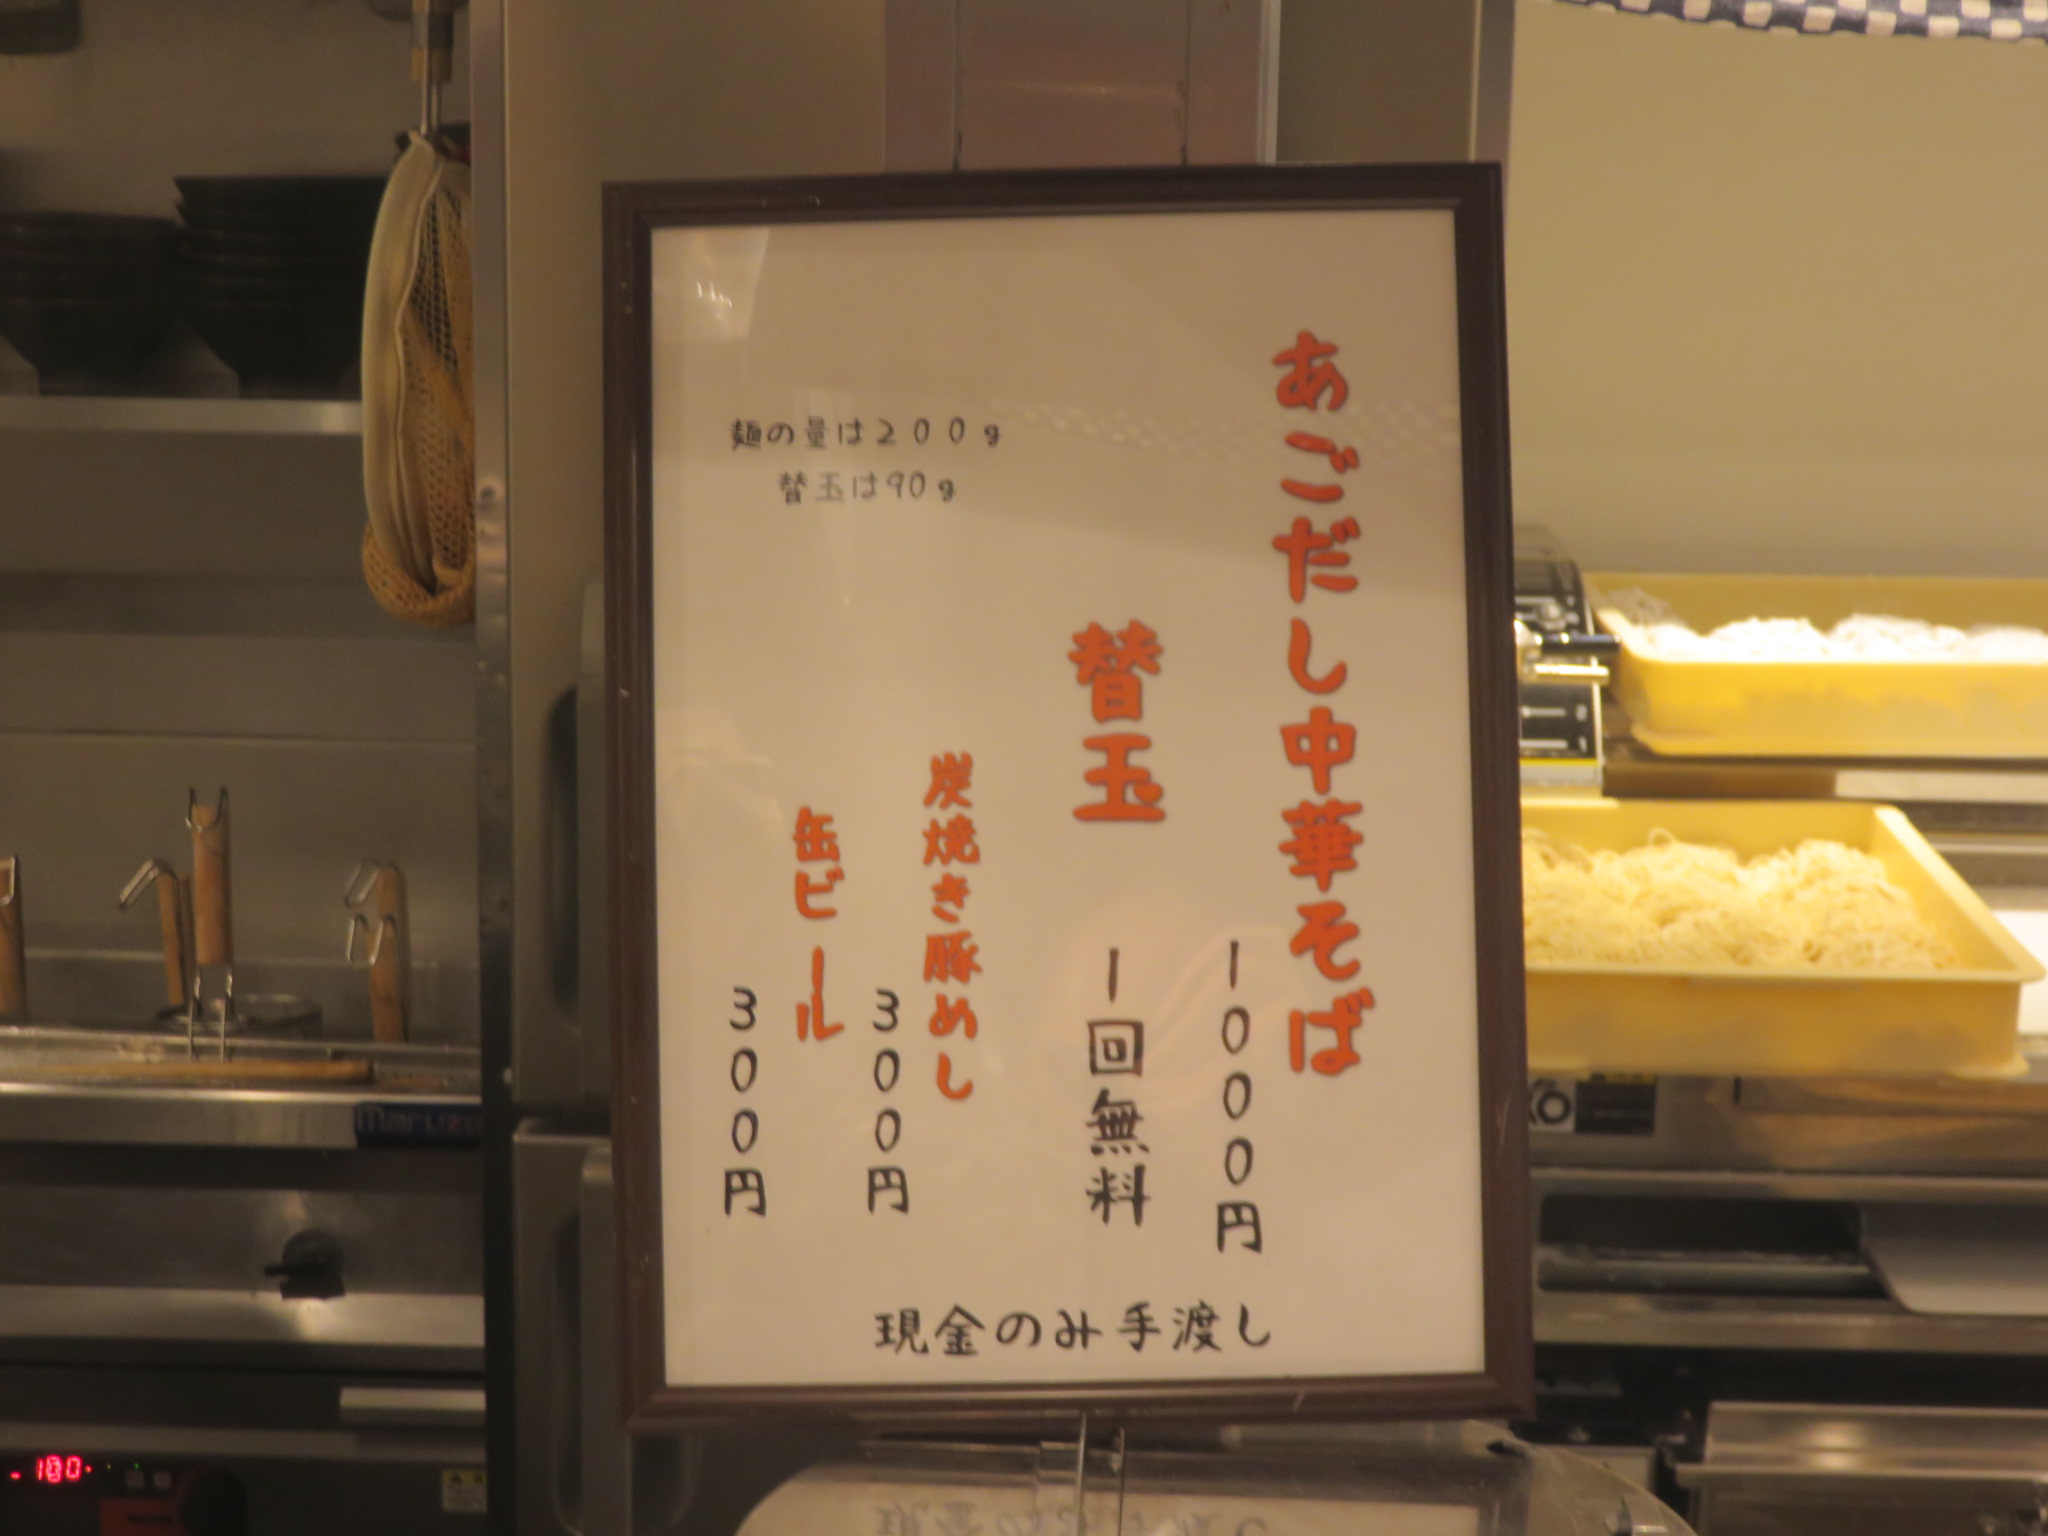 あごだし中華そば
1000円
替玉
1回無料
炭焼き豚めし
300円
缶ビール
300円
麺の量は200g
替玉は90g
現金のみ手渡し
Maruze
180